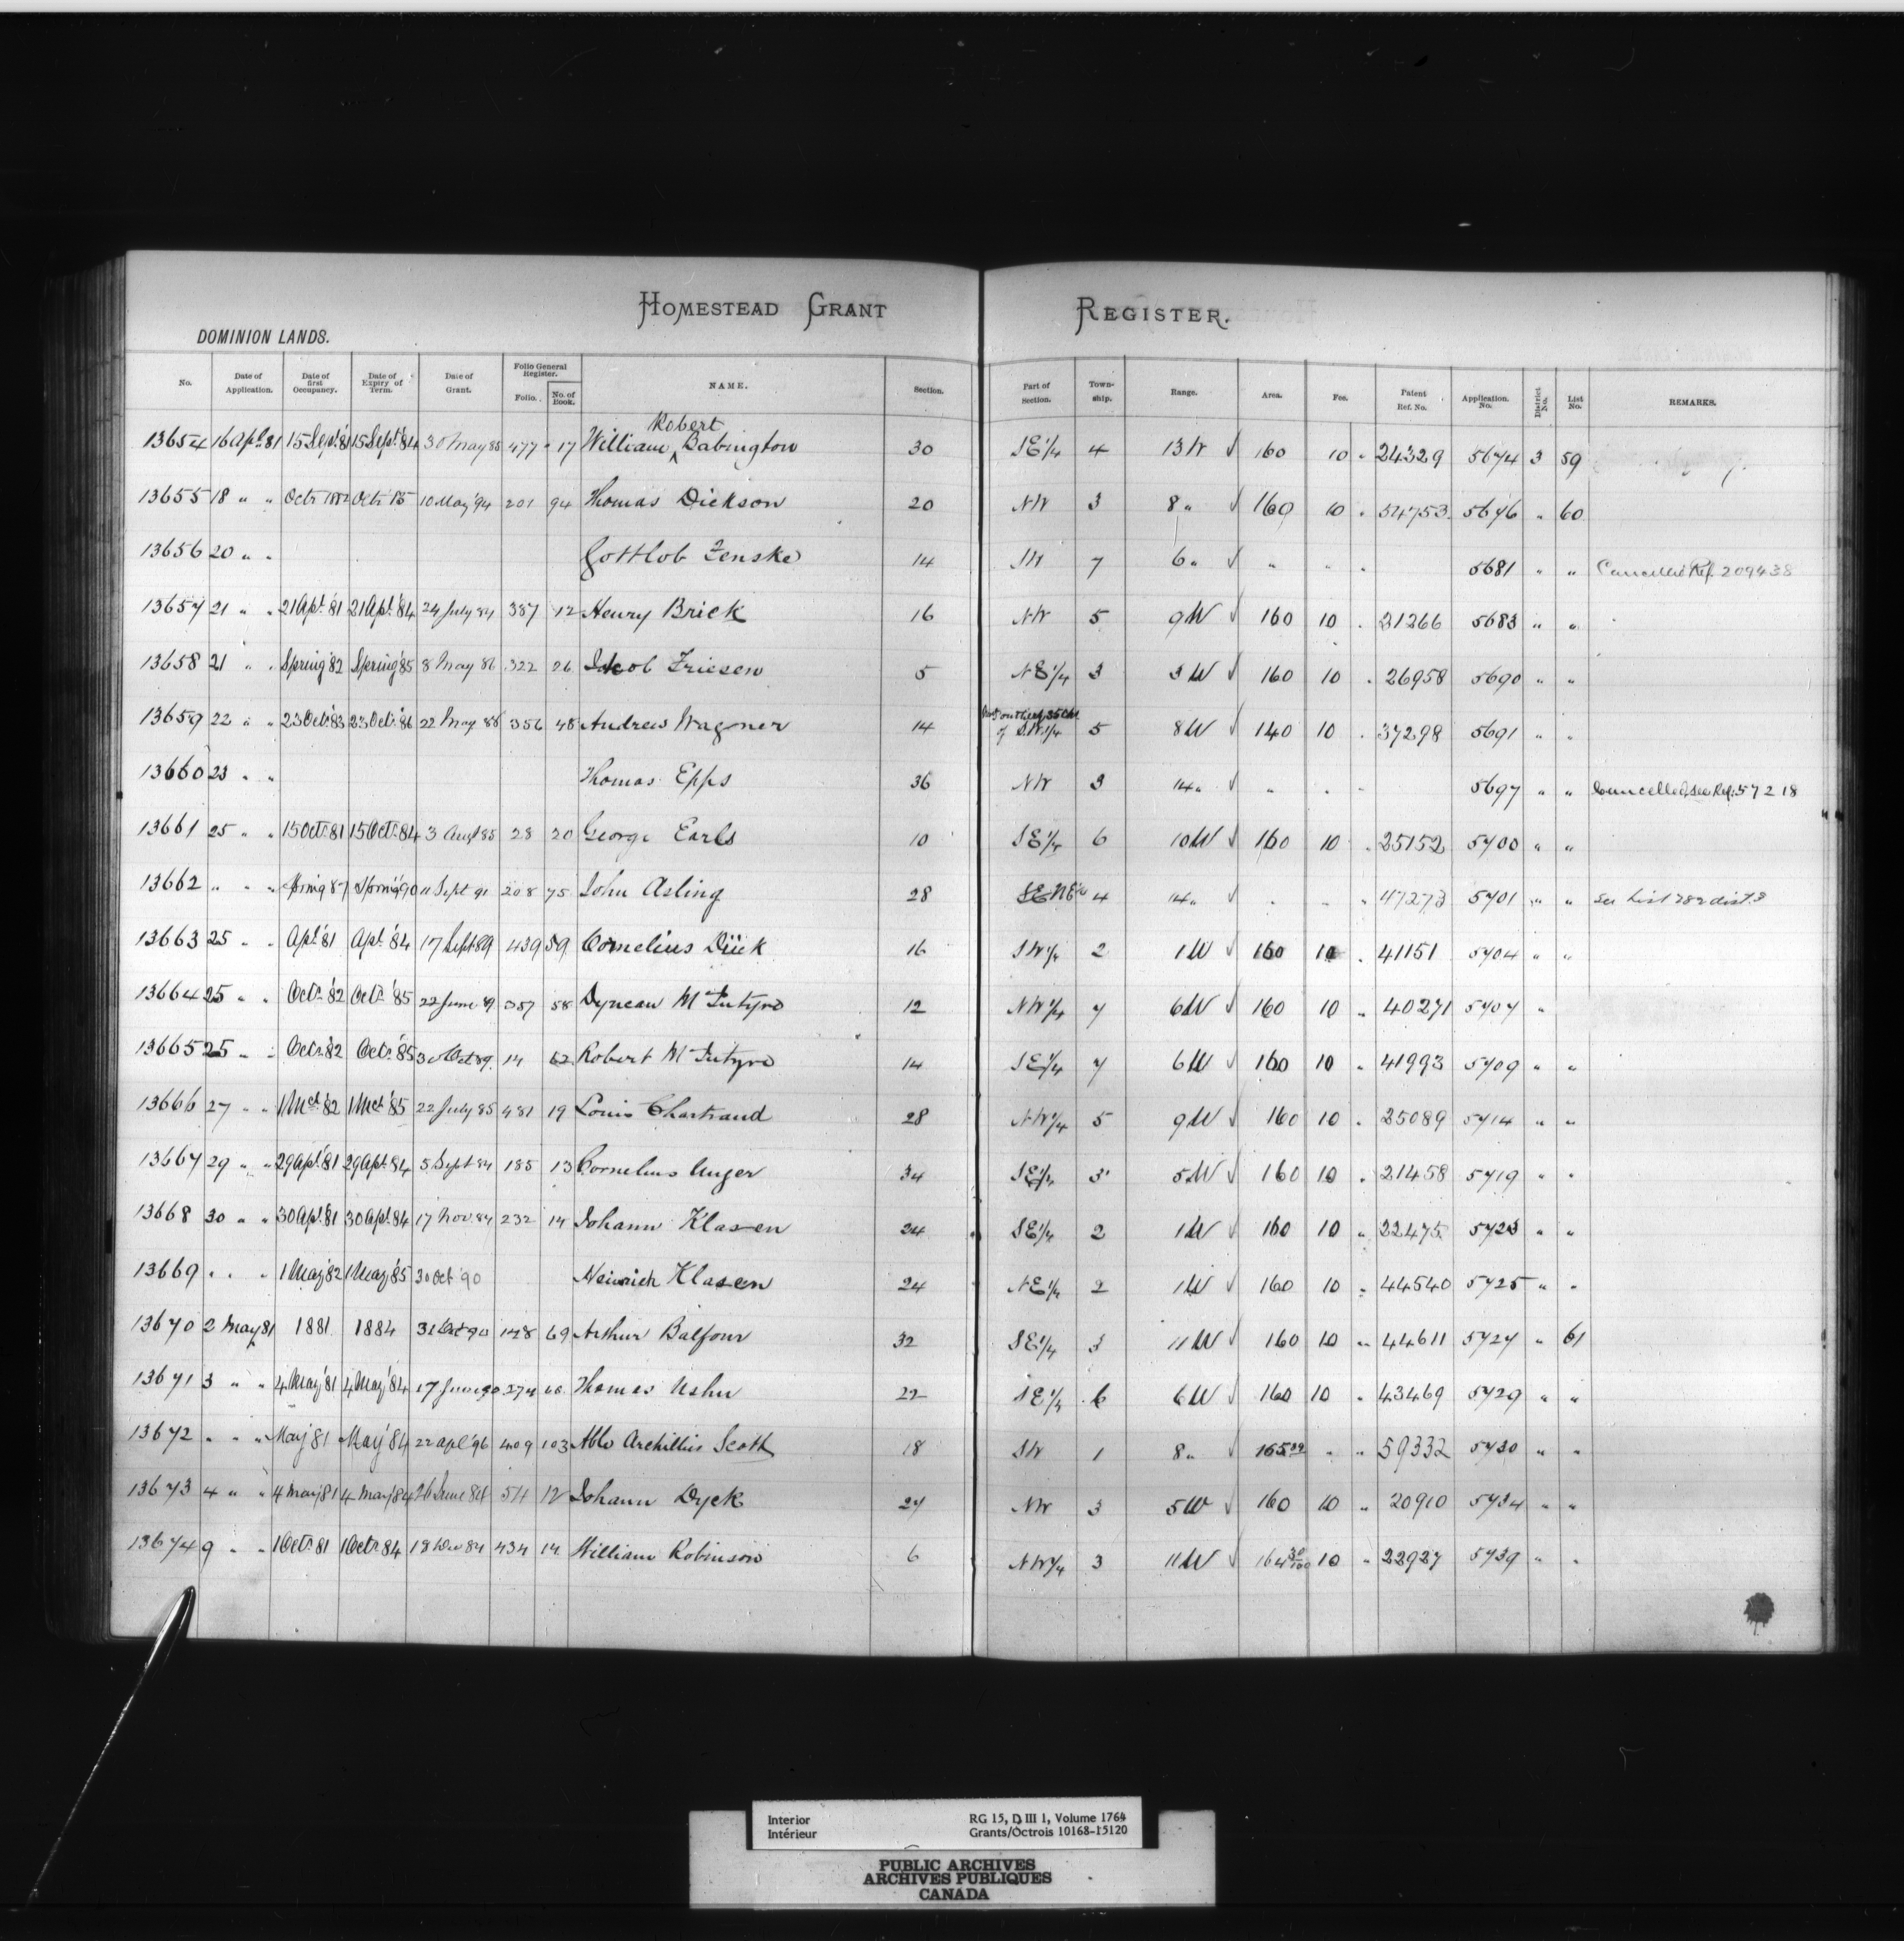 HOMESTEAD GRANT REGISTER.
DOMINION LANDS.
No. Date of Application. Date of first Occupancy. Date of Expiry of Term. Date of Grant. Folio General Register. Folio. No. of Book. NAME. Section. Part of Section. Town-ship. Range. Area. Fee. Patent Ref. No. Application No. District No. List No. REMARKS.
Robert
13654 16 Apl. 81 15 Sept. '81 15 Sept. '84 30 May 85 477 17 William ^ Babington 30 SE 1/4 4 13 W √ 160 10 " 24329 5674 3 59
13655 18 " " Octr 1882 Octr '85 10 May '94 201 94 Thomas Dickson 20 NW 3 8 " √ 160 10 " 54753 5676 " 60
13656 20 " " Gottlob Zenske 14 SW 7 6 " √ " " " 5681 " " Cancelled Ref. 209438
13657 21 " " 21 Apl. '81 21 Apl. '84 24 July 84 387 12 Henry Brick 16 NW 5 9 W √ 160 10 " 21266 5683 " "
13658 21 " " Spring '82 Spring '85 8 May 86 322 26 Jacob Friesen 5 NE 1/4 3 3 W √ 160 10 " 26958 5690 " "
13659 22 " " 23 Oct. '83 23 Oct. '86 22 May 88 356 48 Andrew Wagner 14 of S.W. 1/4 5 8 W √ 140 10 " 37298 5691 " "
13660 23 " " Thomas Epps 36 NW 3 14 " √ " " " 5697 " " Cancelled, see Ref. 57218
13661 25 " " 15 Oct. 81 15 Oct. 84 3 Augt 85 28 20 George Earls 10 SE 1/4 6 10 W √ 160 10 " 25152 5700 " "
13662 " " " Spring 87 Spring '90 11 Sept 91 208 75 John Asling 28 SE NE 1/4 4 14 " √ " " " 47273 5701 " " See List 782 dist. 3
13663 25 " " Apl. '81 Apl. '84 17 Sept 89 439 59 Cornelius Dück 16 SW 1/4 2 1 W √ 160 10 " 41151 5704 " "
13664 25 " " Octr. '82 Octr. '85 22 June 89 357 58 Dyncan McIntyre 12 NW 1/4 7 6 W √ 160 10 " 40271 5707 "
13665 25 " " Octr. '82 Octr. '85 30 Oct 89 14 62 Robert McIntyre 14 SE 1/4 7 6 W √ 160 10 " 41993 5709 " "
13666 27 " " 1 Mch '82 1 Mch '85 22 July 85 481 19 Louis Chartrand 28 NW 1/4 5 9 W √ 160 10 " 25089 5714 " "
13667 29 " " 29 Apl. '81 29 Apl. 84 5 Sept 84 185 13 Cornelius Unger 34 SE 1/4 3 5 W √ 160 10 " 21458 5719 " "
13668 30 " " 30 Apl. 81 30 Apl. 84 17 Nov. 84 232 14 Johann Klasen 24 SE 1/4 2 1 W √ 160 10 " 22475 5723 " "
13669 " " " 1 May '82 1 May '85 30 Oct '90 Heinrich Klasen 24 NE 1/4 2 1 W √ 160 10 " 44540 5725 " "
13670 2 May 81 1881 1884 31 Oct 90 148 69 Arthur Balfour 32 SE 1/4 3 11 W √ 160 10 " 44611 5727 " 61
13671 3 " " 4 May '81 4 May '84 17 June 90 274 66 Thomas Usher 22 SE 1/4 6 6 W √ 160 10 " 43469 5729 " "
13672 " " " May '81 May '84 22 Apl. '96 409 103 Scott 18 SW 1 8 " √ 165 " " 59332 5730 " "
13673 4 " " 4 May 81 4 May 84 26 June 84 54 12 Johann Dyck 27 NW 3 5 W √ 160 10 " 20910 5734 " "
13674 9 " " 1 Octr. 81 1 Octr. 84 18 Dec 84 434 14 William Robinson 6 NW 1/4 3 11 W √ 164 30/100 10 " 22927 5739 " "
Interior RG 15, D III 1, Volume 1764
Intérieur Grants/Octrois 10168-15120
PUBLIC ARCHIVES
ARCHIVES PUBLIQUES
CANADA